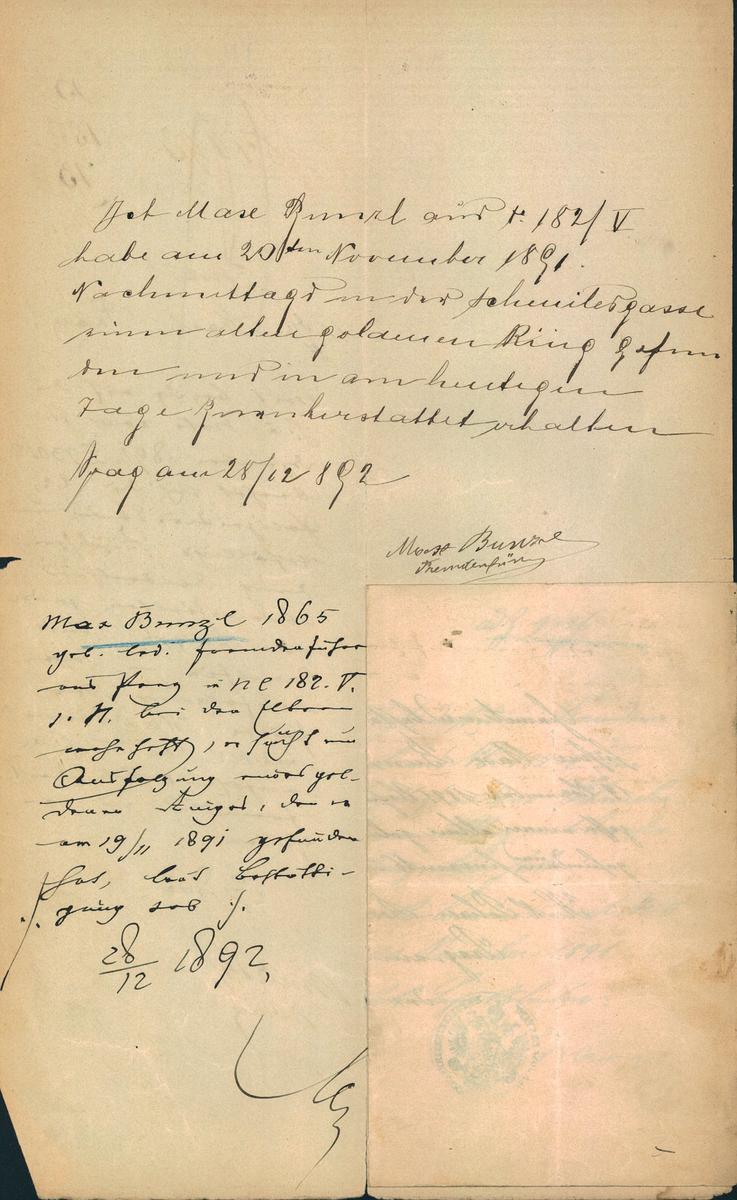 Ich Max Bunzl aus N. 182/V
habe am 20ten November 1891.
Nachmittags in der Schmiledgasse
einen alten goldenen Ring gefun
den und in am heutigen
Tage zurückerstattet erhalten
Prag am 28/12 892
Max Bunzl
Fremdenführ
Max Bunzl 1865
geb. led. Fremdenführer
aus Prag in NC 182. V.
bei den Eltern
wohnhaft, ersucht um
Ausfolgung eines gol-
denen Ringes, den er
am 19/11 1891 gefunden
hat, laut Bestätti-
gung sub ./.
28/12 1892,